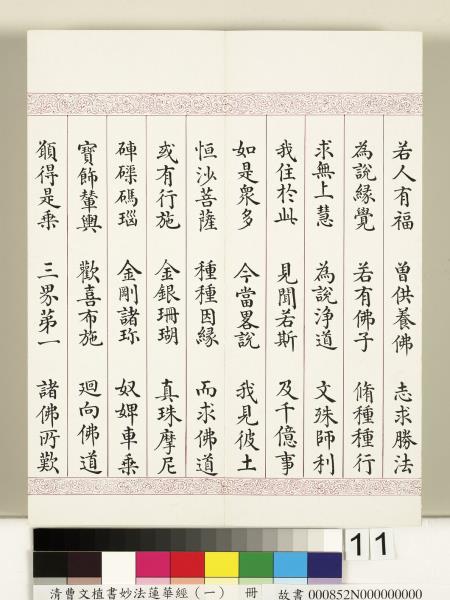 若人有福　曾供養佛　志求勝法
為說緣覺　若有佛子　脩種種行
求無上慧　為說淨道　文殊師利
我住於此　見聞若斯　及千億事
如是眾多　今當畧說　我見彼土
恒沙菩薩　種種因緣　而求佛道
或有行施　金銀珊瑚　真珠摩尼
硨磲碼瑙　金剛諸珎　奴婢車乘
寶飾輦輿　歡喜布施　廻向佛道
願得是乘　三界第一　諸佛所歎
11
清曹文植書妙法蓮華經（一）　冊　故書 000852N000000000